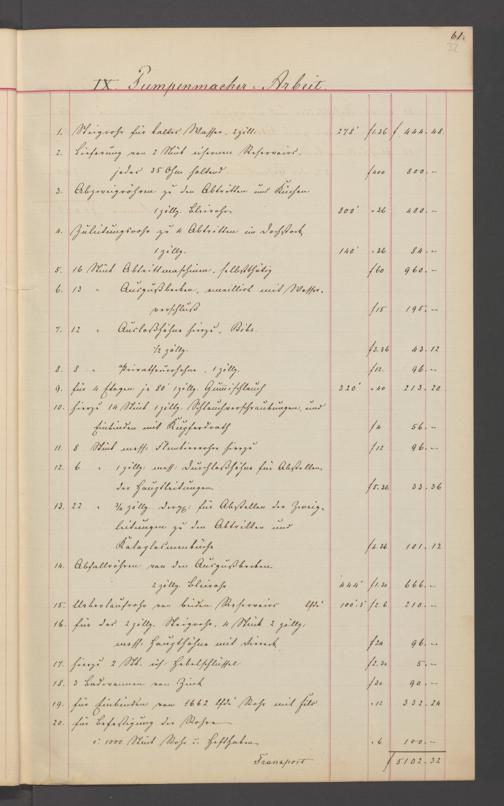 61.
32
IX. Pumpenmacher-Arbeit.
1. Steigrohr für kaltes Wasser, 2 zöll. 278' f 1.36 f 444.48
2. Lieferung von 2 Stück eisernen Reservoirs,
jedes 35 Ohm haltend f 400 800.-
3. Abzweigröhren zu den Abtritten und Küchen
1 zöllg. Bleirohr 800' .36 480.-
4. Zuleitungsrohr zu 4 Abtritten im Dachstock
1 zöllg. 140' .36 84.-
5. 16 Stück Abtrittmaschinen, selbstthätig f 60 960.-
6. 13 " Ausgußbecken, emaillirt mit Wasser-
verschluß f 15 195.-
7. 12 " Auslaßhähne hiezu,
1/2 zöllg. 43.12
8. 8 " 1 zöllg. f 12 96.-
9. für 4 Etagen je 80' 1 zöllg. Gummischlauch 320' .40 213.20
10. hiezu 14 Stück 1 zöllg. Schlauchverschraubungen und
Einbinden mit Kupferdraht f 4 56.-
11. 8 Stück mess. hiezu f 12 96.-
12. 6 " 1 zöllg. mess. Durchlaßhähne für Abstellen
der Hauptleitungen f 5.36 33.36
13. 22 " 3/4 zöllg. für Abstellen der Zweig-
leitungen zu den Abtritten und
f 4.36 101.12
14. Abfallröhren von den Ausgußbecken
2 zöllg. Bleirohr 444' f 1.30 666.-
15. Ueberlaufrohr von beiden Reservoirs 100'.5 f 2.6 210.-
16. für das 2 zöllg. Steigrohr, 4 Stück 2 zöllg.
mess. Haupthähne mit f 24 96.-
17. hiezu 2 Stk. Hebelschlüssel f 2.30 5.-
18. 3 Badwannen von Zink f 30 90.-
19. für Einbinden von 1662 Rohr mit Filz .12 332.24
20. für Befestigung der Rohre
1000 Stück Rohr u. Hefthaken .6 100.-
Transport f 5102.32